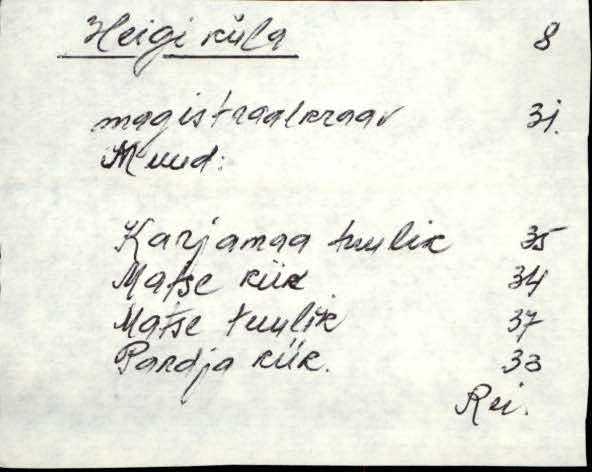 Heigi küla 8
magistraalkraav 31.
Muud:
Karjamaa tuulik 35
Matse kiik 34
Matse tuulik 37
Pardja kiik. 33
Rei.